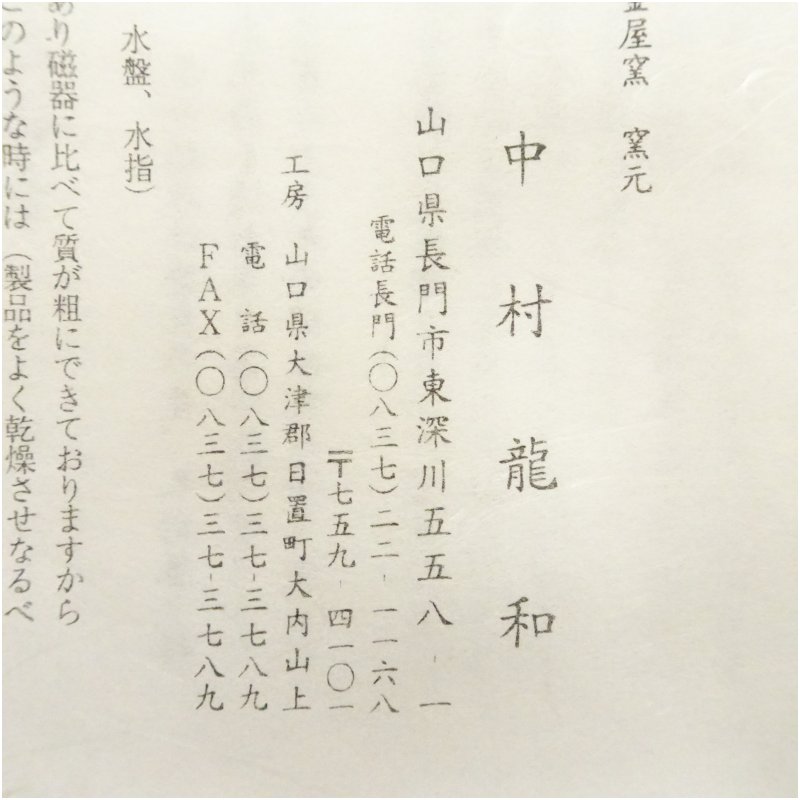 屋窯　窯元
中村龍和
山口県長門市東深川五五八-一
電話長門(〇八三七)二二-一一六八
〒七五九-四一〇一
工房　山口県大津郡日置町大内山上
電　話(〇八三七)三七-三七八九
FAX(〇八三七)三七-三七八九
水盤、水指)
あり磁器に比べて質が粗にできておりますから
このような時には(製品をよく乾燥させなるべ